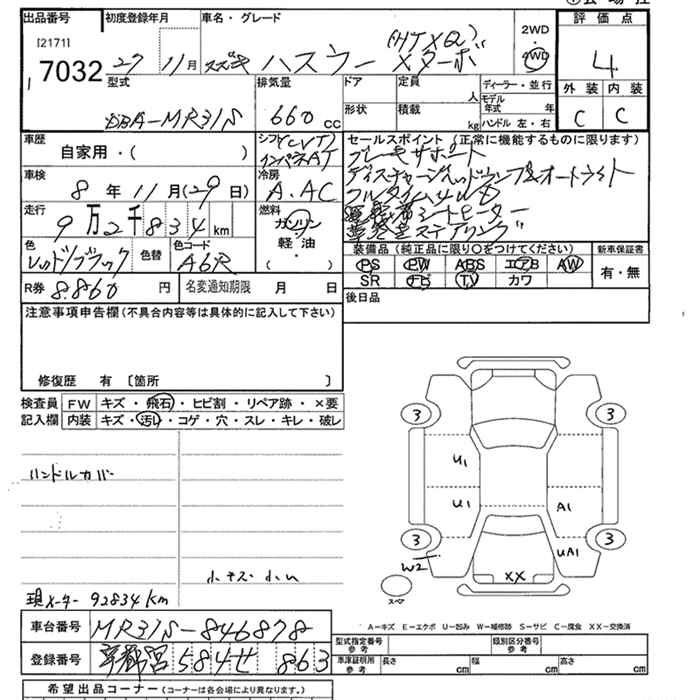 出品番号 初度登録年月 車名・グレード 2WD 評価点
[2171] 27 11月 スズキ ハスラー (HT XQ) Xターボ 4WD 4
7032
型式 排気量 ドア 定員 ディーラー・並行 外装 内装
DBA-MR31S 660cc 人 モデル年式 年 C C
形状 積載 kg ハンドル 左・右
車歴 シフト (CVT) セールスポイント (正常に機能するものに限ります)
自家用・( ) インパネAT ブレーキサポート
車検 冷房 ディスチャージヘッドランプ&オートライト
8年11月(29日) A.AC フルタイム4WD
走行 燃料 シートヒーター
9万2千834km ガソリン
色 色替 色コード 軽油
レッド/ブラック A6R ( )
装備品 (純正品に限り○をつけてください) 新車保証書
PS PW ABS エアB AW 有・無
SR ナビ TV カワ
R券 8.860円 名変通知期限 月 日 後日品
注意事項申告欄(不具合内容等は具体的に記入して下さい)
修復歴 有 〔箇所 〕
検査員 FW キズ・飛石・ヒビ割・リペア跡・×要
記入欄 内装 キズ・汚し・コゲ・穴・スレ・キレ・破レ
3 3
ハンドルカバー
U1
U1 A1
3 3
UA1
W2
XX
小キズ 小U
スペア
現メーター 92834km
A-キズ E-エクボ U-凹み W-補修跡 S-サビ C-腐食 XX-交換済
車台番号 MR31S-846878
型式指定番号 参考 類別区分番号 参考
登録番号 宇都宮 584 せ 863
車庫証明用 参考 長さ cm 幅 cm 高さ cm
希望出品コーナー (コーナーは各会場により異なります。)